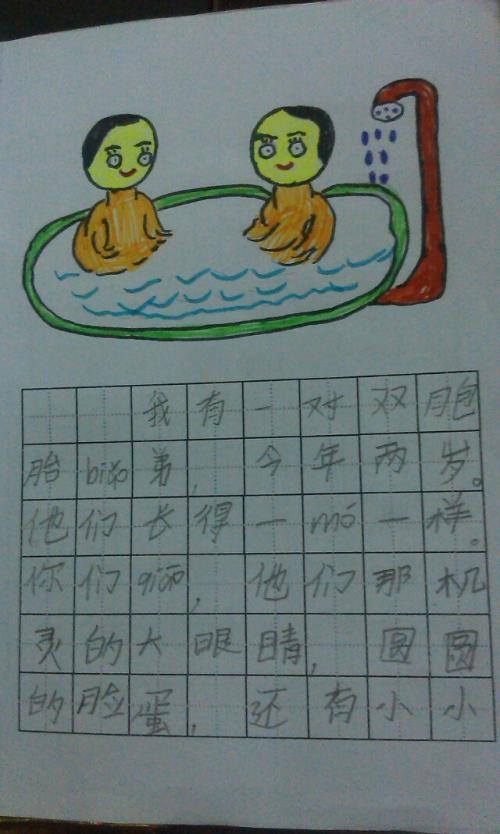 我有一对双胞
胎biǎo弟，今年两岁。
他们长得一mó一样。
你们qiáo，他们那机
灵的大眼睛，圆圆
的脸蛋，还有小小